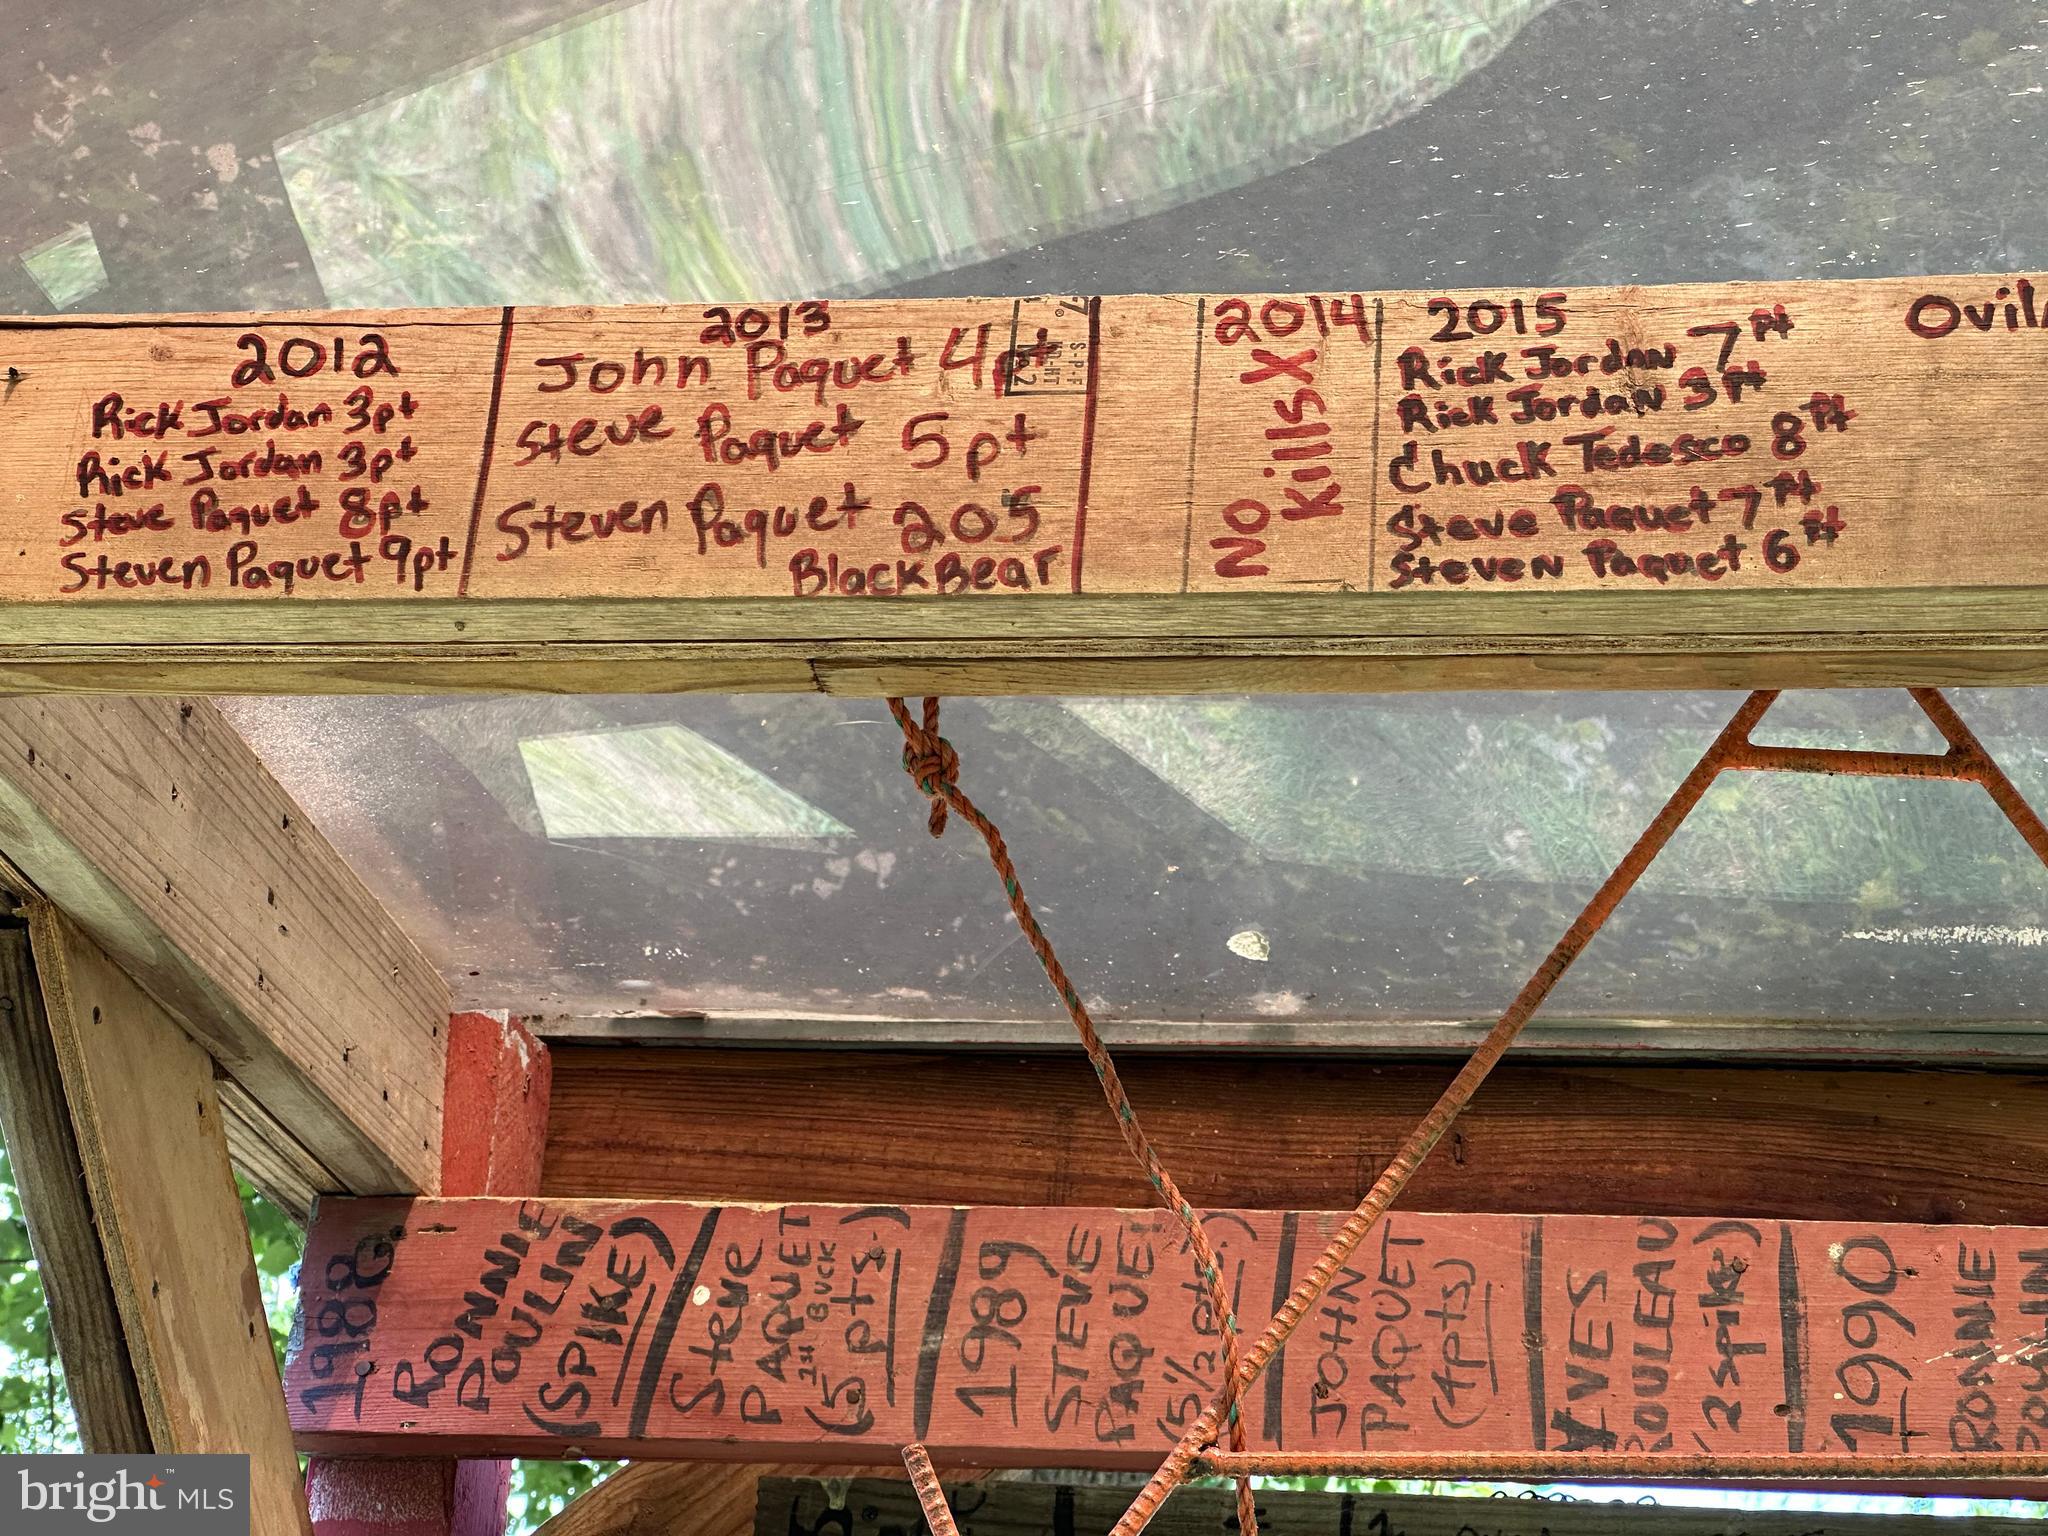 2012
Rick Jordan 3pt
Rick Jordan 3pt
Steve Paquet 8pt
Steven Paquet 9pt
2013
John Paquet 4pt
Steve Paquet 5pt
Steven Paquet 205
Black Bear
2014
No
Kills X
2015
Rick Jordan 7pt
Rick Jordan 3pt
Chuck Tedesco 8pt
Steve Paquet 7pt
Steven Paquet 6pt
1988
RONNIE
POULIN
(SPIKE)
Steve
PAQUET
1st BUCK
(5 pts.)
1989
STEVE
PAQUET
(5 1/2 pts.)
JOHN
PAQUET
(4pts)
YVES
ROULEAU
(2 spike)
1990
RONNIE
bright MLS